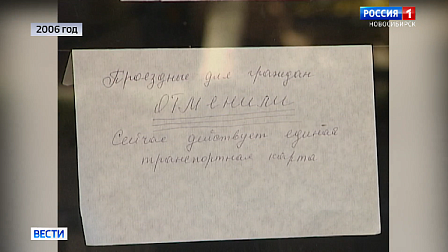 2006 ГОД
РОССИЯ 1
НОВОСИБИРСК
Проездные для граждан
ОТМЕНИЛИ
Сейчас действует единая
транспортная карта
ВЕСТИ